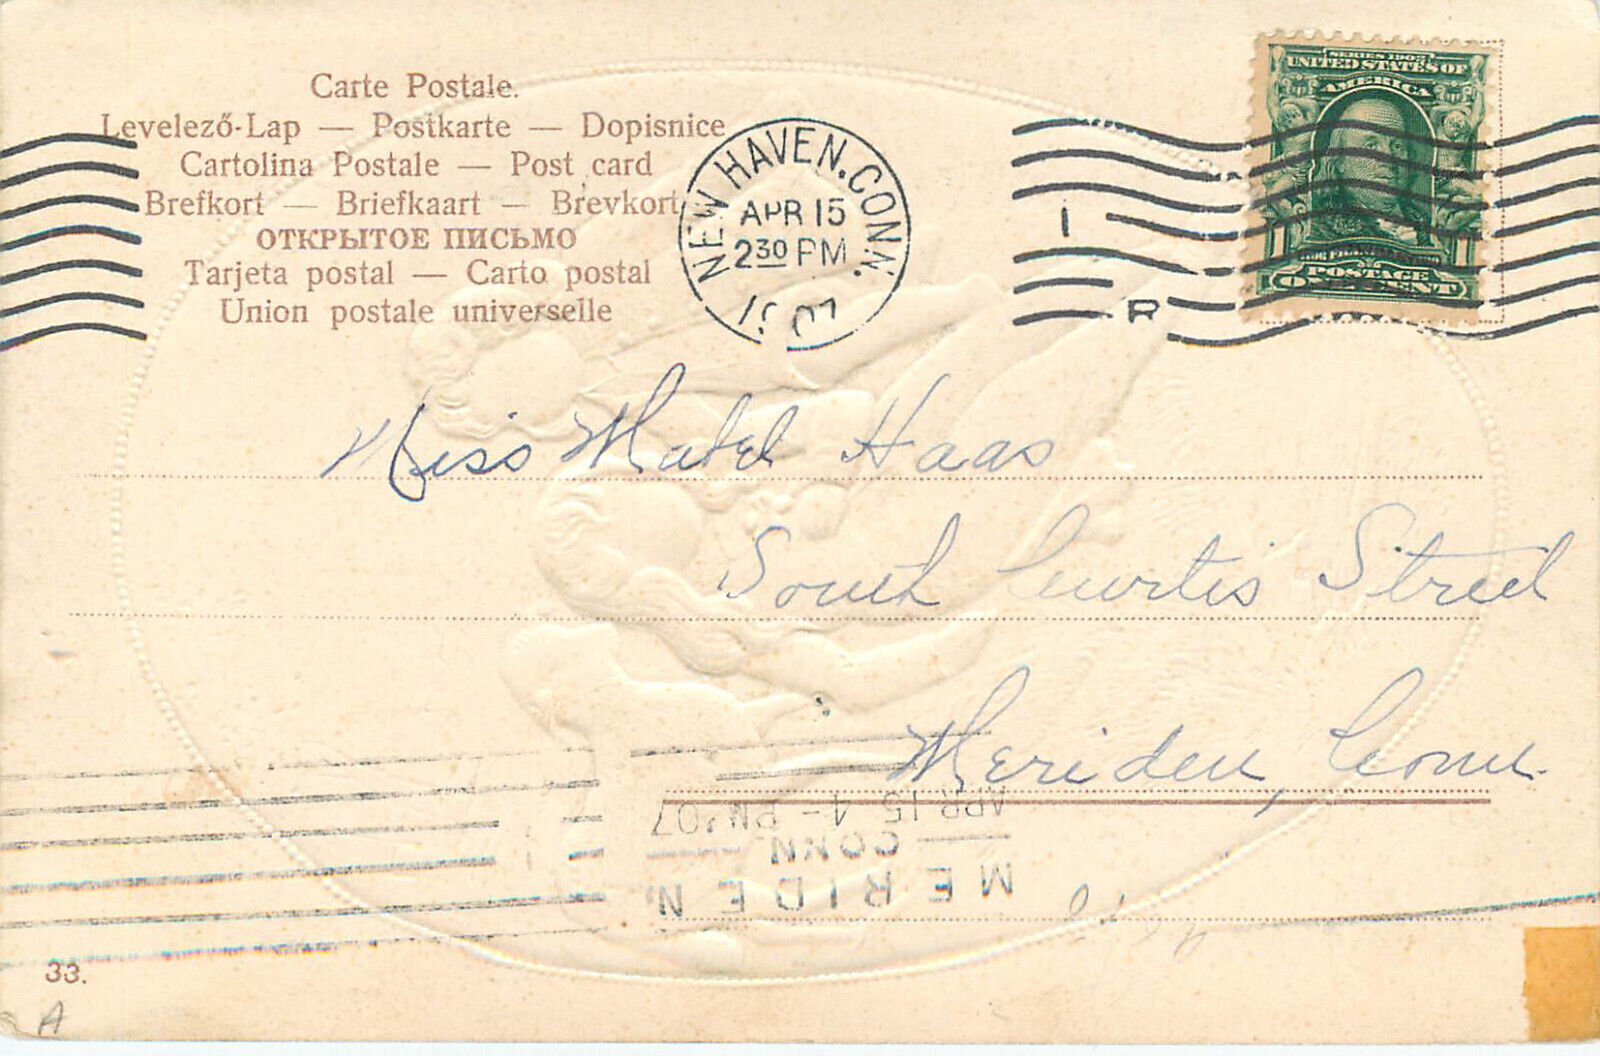 Carte Postale.
Levelező-Lap — Postkarte — Dopisnice
Cartolina Postale — Post card
Brefkort — Briefkaart — Brevkort
ОТКРЫТОЕ ПИСЬМО
Tarjeta postal — Carto postal
Union postale universelle
NEW HAVEN, CONN.
APR 15
2 30 PM
1907
1
R
SERIES 1902
UNITED STATES OF
AMERICA
1 1
POSTAGE
ONE CENT
Miss Mabel Haas
South Curtis Street
Meriden, Conn.
MERIDEN,
CONN.
APR 15 4 - PM '07
33.
A